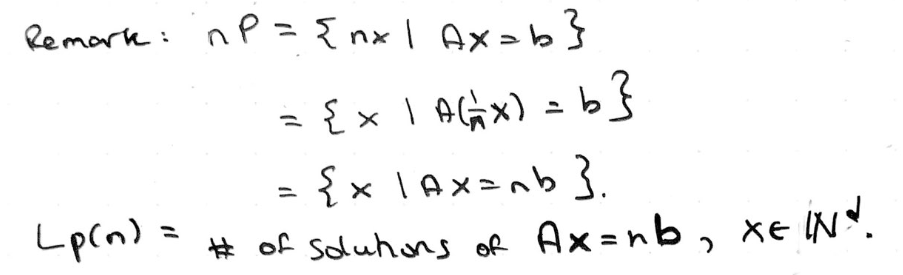 Remark: nP = { nx | Ax = b }
= { x | A(1/n x) = b }
= { x | Ax = nb }.
Lp(n) = # of solutions of Ax = nb, x ∈ ℕ^d.